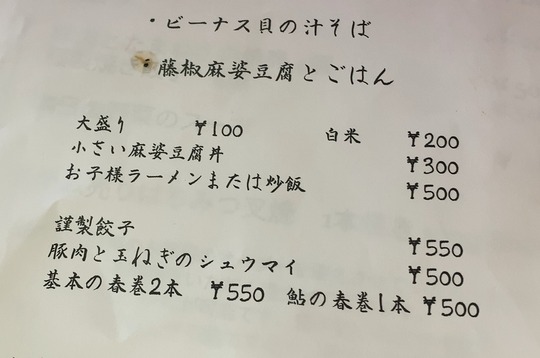 ・ビーナス貝の汁そば
・藤椒麻婆豆腐とごはん
大盛り ¥100 白米 ¥200
小さい麻婆豆腐丼 ¥300
お子様ラーメンまたは炒飯 ¥500
謹製餃子 ¥550
豚肉と玉ねぎのシュウマイ ¥500
基本の春巻2本 ¥550 鮎の春巻1本 ¥500